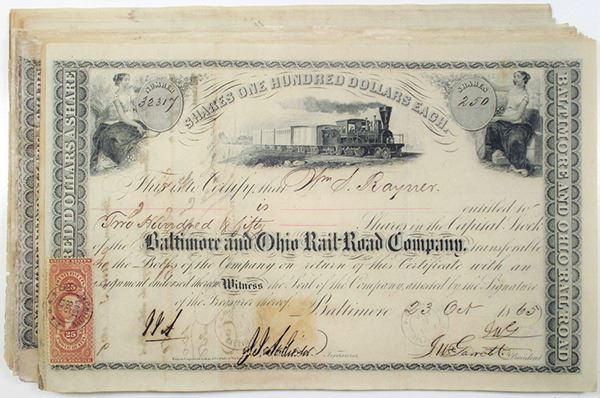 NUMBER
52317
SHARES ONE HUNDRED DOLLARS EACH.
SHARES
250
RED DOLLARS A SHARE
BALTIMORE AND OHIO RAIL-ROAD
This is to Certify, that Wm S. Rayner
is entitled to
Two Hundred & fifty Shares in the Capital Stock
of the Baltimore and Ohio Rail-Road Company, transferable
on the Books of the Company on return of this Certificate with an
assignment endorsed thereon Witness the Seal of the Company, attested by the Signature
of the Treasurer thereof. Baltimore 23 Oct 1865
25
25
JWG
Treasurer
JW Garrett President